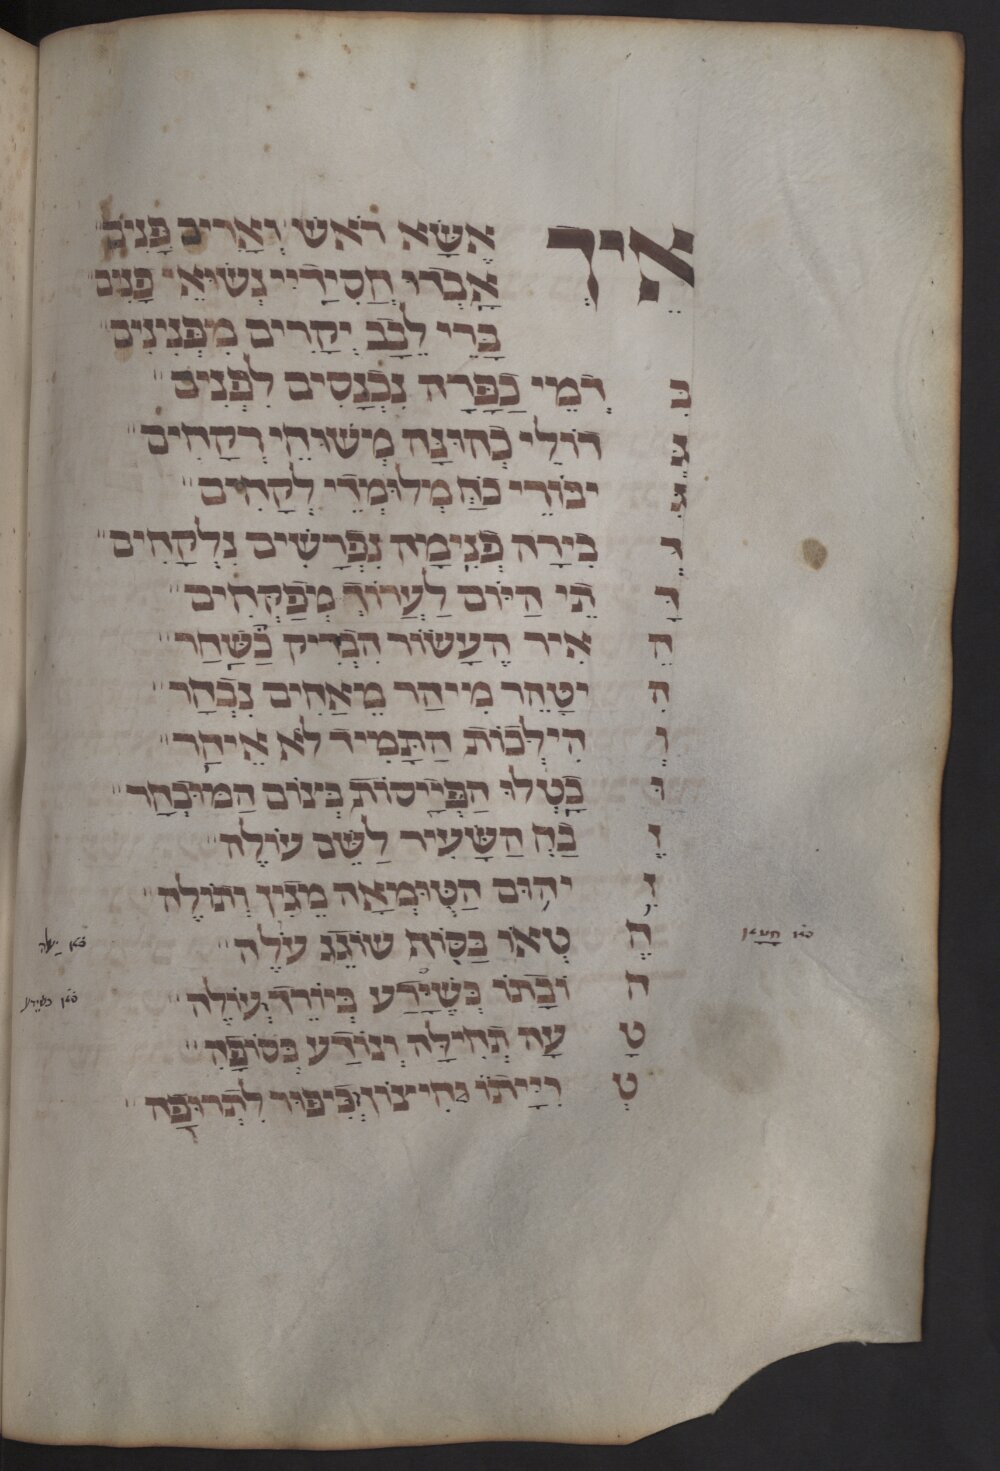 אֵיךְ אֶשָּׂא רֹאשׁ וְאָרִים פָּנִים
אָבְדוּ חֲסִידַיי נְשׂוּאֵי פָנִים
בָּרֵי לֵבָב יְקָרִים מִפְּנִינִים
בִּ דְמֵי כַפָּרָה נִכְנָסִים לִפְנִים
גְּ דוֹלֵי כְהוּנָּה מְשׁוּחֵי רְקָחִים
גִּ יבּוֹרֵי כֹחַ מְלוּמְּדֵי לְקָחִים
דְ בִירָה פְּנִימָה נִפְרָשִׁים נִלְקָחִים
דָּ תֵי הַיּוֹם לַעֲרוֹךְ מְפַקְּחִים
הֵ אִיר הֶעָשׂוֹר הִבְרִיק בַּשַּׁחַר
הִ יטָּהֵר מִיהַר מֵאַחִים נִבְחָר
וְ הִילְכוֹת הַתָּמִיד לֹא אֵיחַר
וּ בָטְלוּ הַפְּיָיסוֹת בְּצוֹם הַמּוּבְחָר
זֶ בַח הַשָּׂעִיר לַשֵּׁם עוֹלֶה
זִ יהוּם הַטּוּמְאָה מֵגִין וְתוֹלֶה
חֶ טְאוֹ בַּסּוֹת שׁוֹגֵג עֹלֶה
ח וֹבָתוֹ כְּשֶׁיֵּדַע בְּיוֹרֵד וְעוֹלֶה
טָ עָה תְחִילָּה וְנוֹדַע בְּסוֹפָהּ
טְ רִיָּיתוֹ בַחִיצוֹן וְכִיפּוּר לִתְרוּפָה